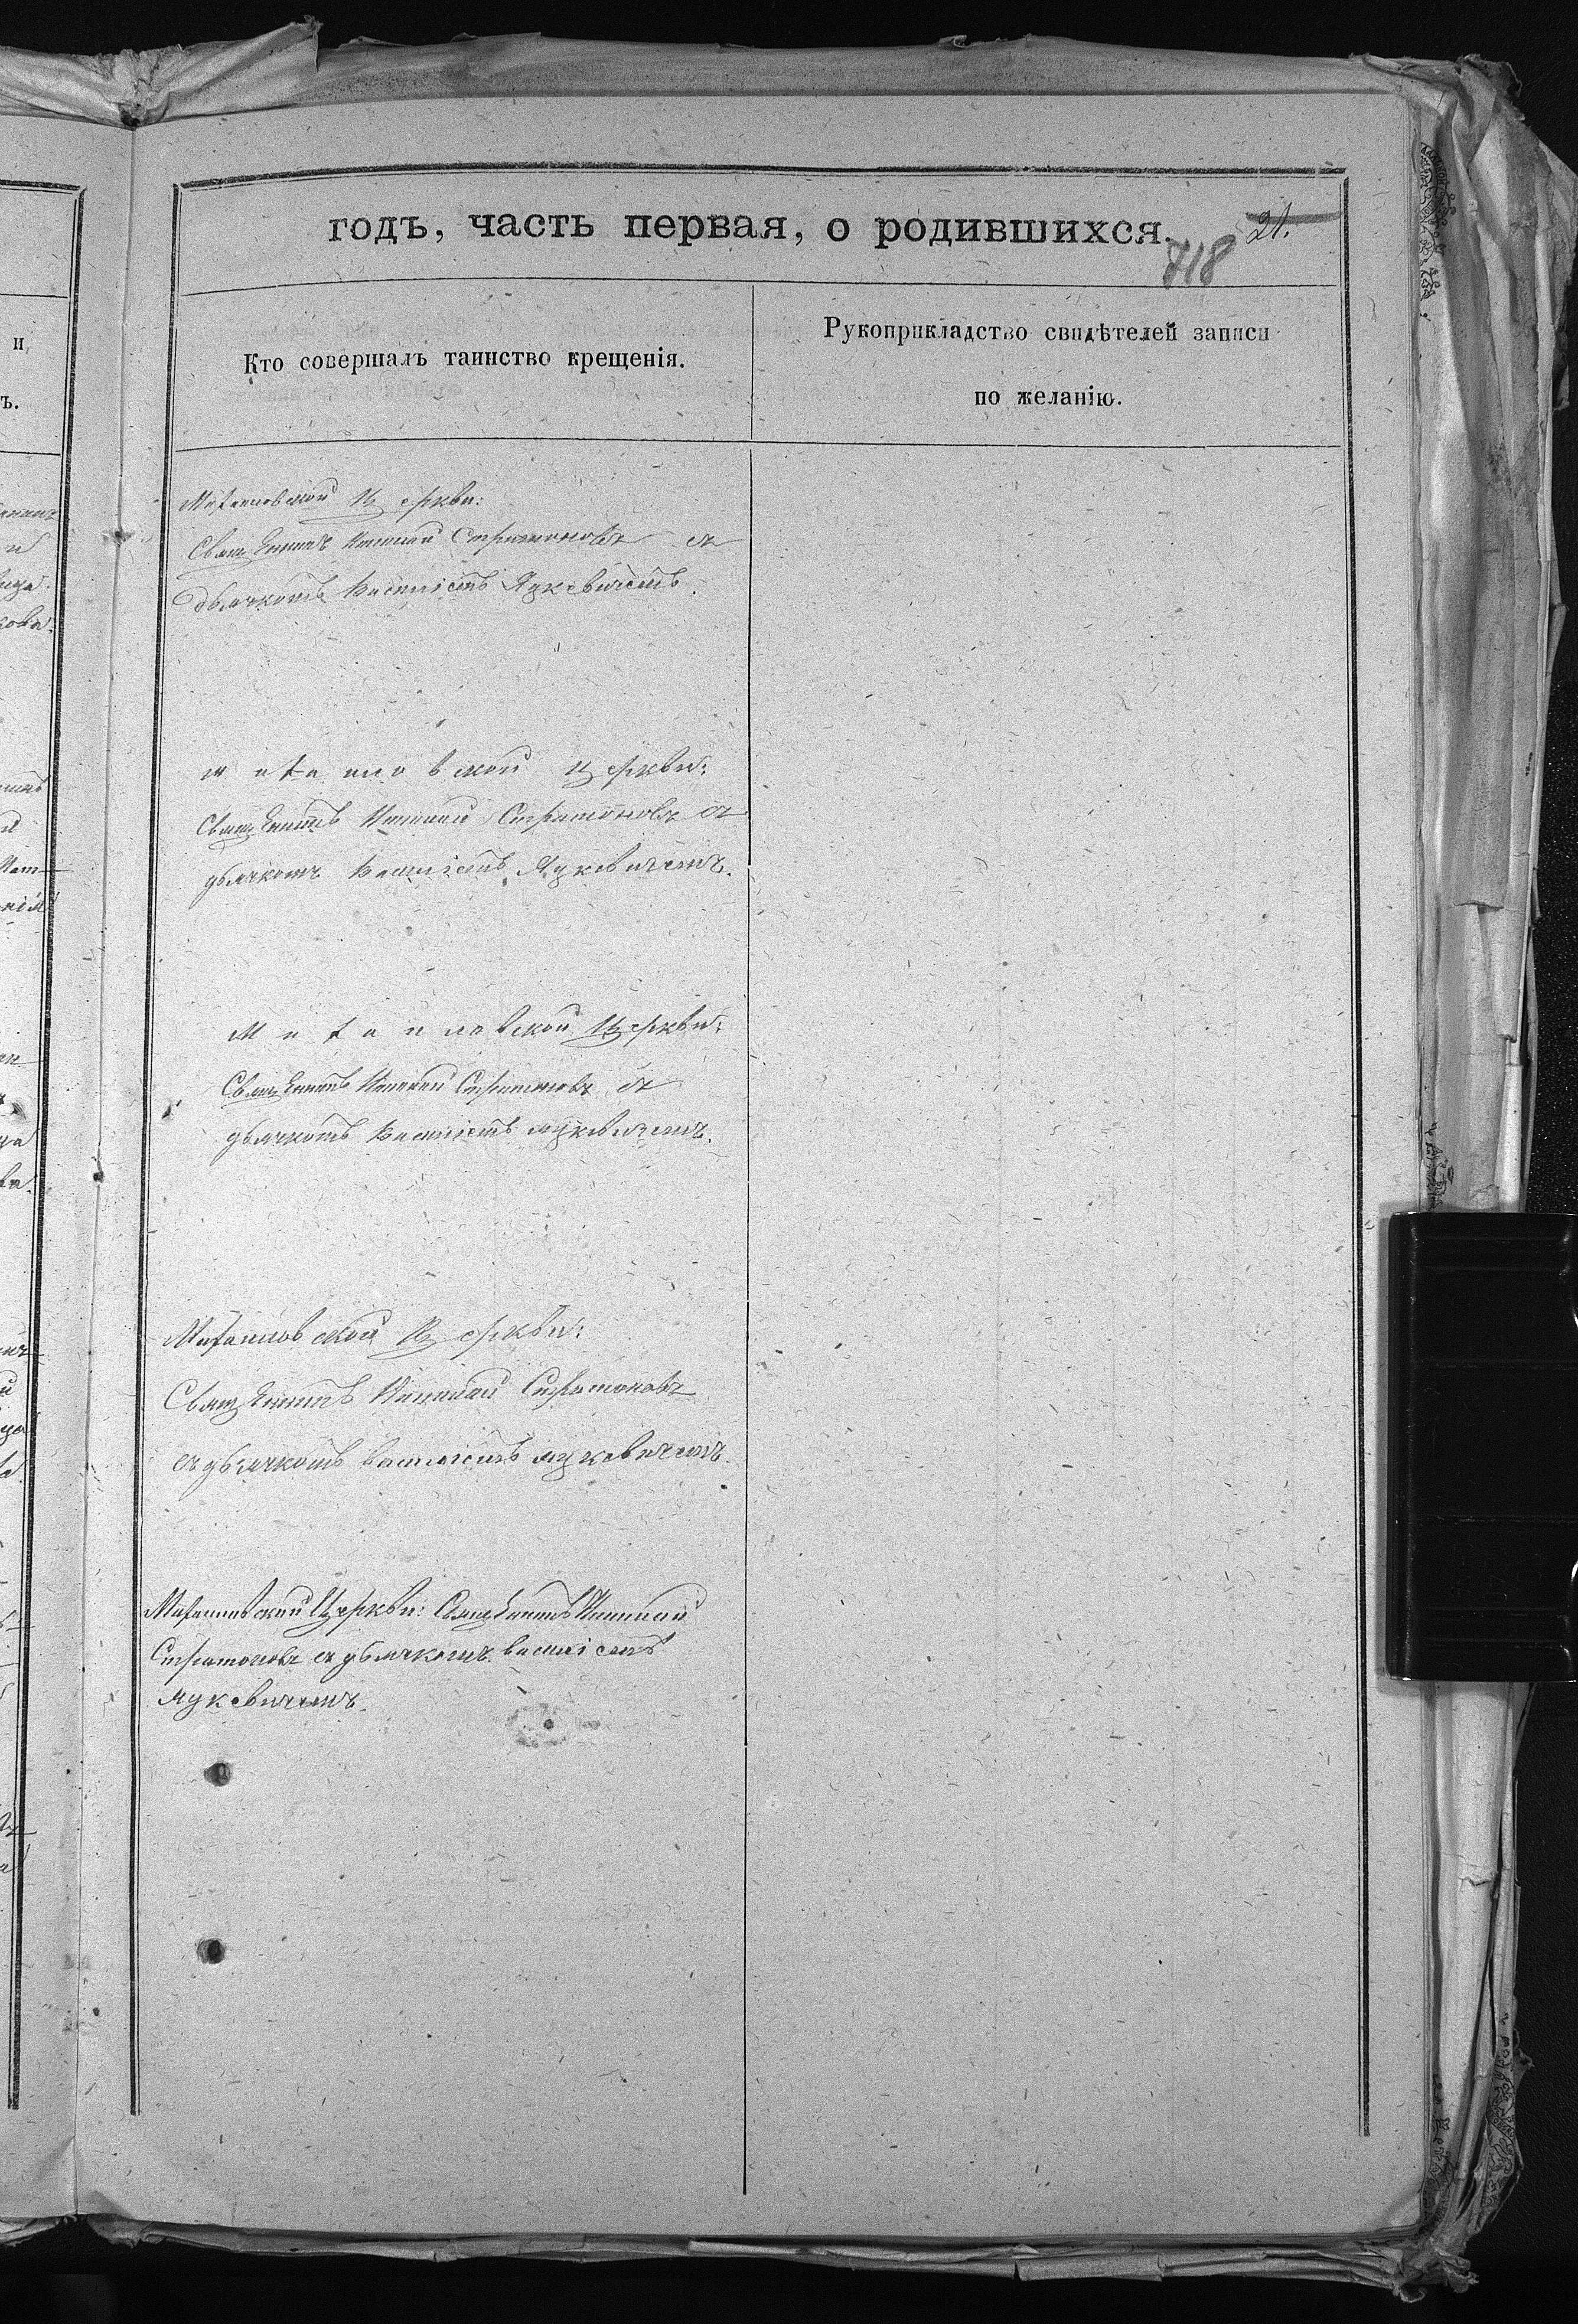 годъ, часть первая, о родившихся.
21.
718
Кто совершалъ таинство крещенія.
Рукоприкладство свидѣтелей записи
по желанію.
Михаиловской Церкви:
Священникъ Стратоновъ съ
дьячкомъ Василіемъ Яцкевичемъ.
михаиловской церкви:
Священникъ Стратоновъ съ
дьячкомъ Василіемъ Яцкевичемъ.
Михаиловской Церкви:
Священникъ Стратоновъ съ
дьячкомъ Василіемъ яцкевичемъ.
Михаиловской Церкви:
Священникъ Стратоновъ
съ дьячкомъ василіемъ яцкевичемъ.
Михаиловской Церкви: Священникъ
Стратоновъ съ дьячкомъ василіемъ
яцкевичемъ.